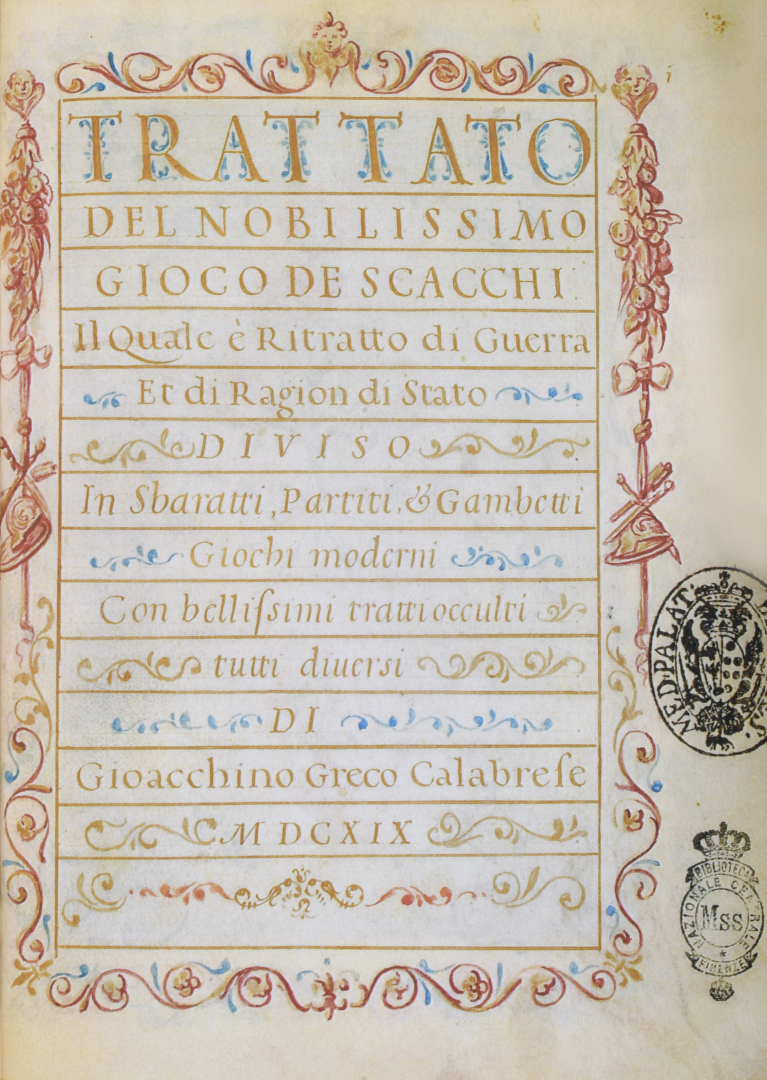 i
TRATTATO
DEL NOBILISSIMO
GIOCO DE SCACCHI
Il Quale è Ritratto di Guerra
Et di Ragion di Stato
DIVISO
In Sbaratti, Partiti, & Gambetti
Giochi moderni
Con belliſsimi tratti occulti
tutti diuersi
DI
Gioacchino Greco Calabreſe
MDCXIX
MED. PALAT.
BIBLIOTECA
NAZIONALE CENTRALE
Mss
FIRENZE